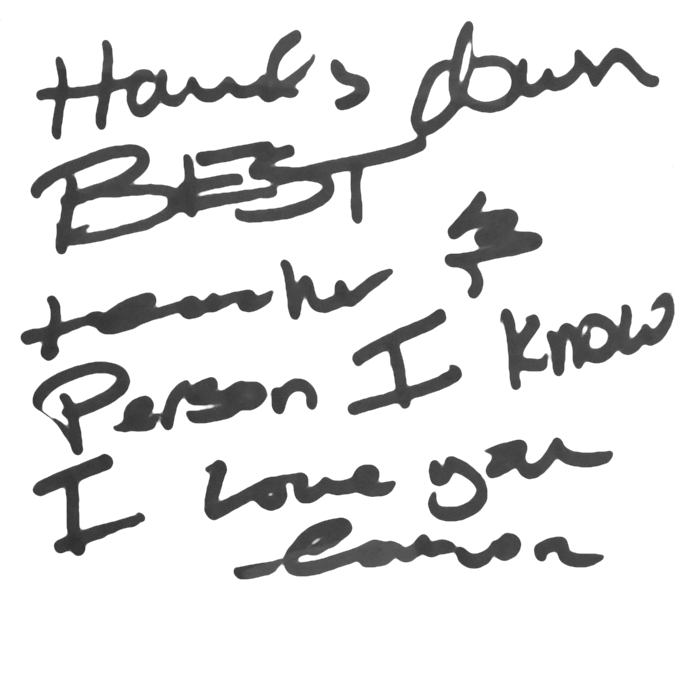 Hands down
BEST
teacher &
Person I know
I Love you